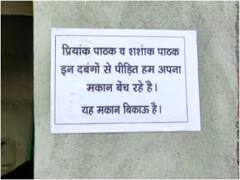 प्रियांक पाठक व शशांक पाठक
इन दबंगों से पीड़ित हम अपना
मकान बेंच रहे है।
यह मकान बिकाऊ है।